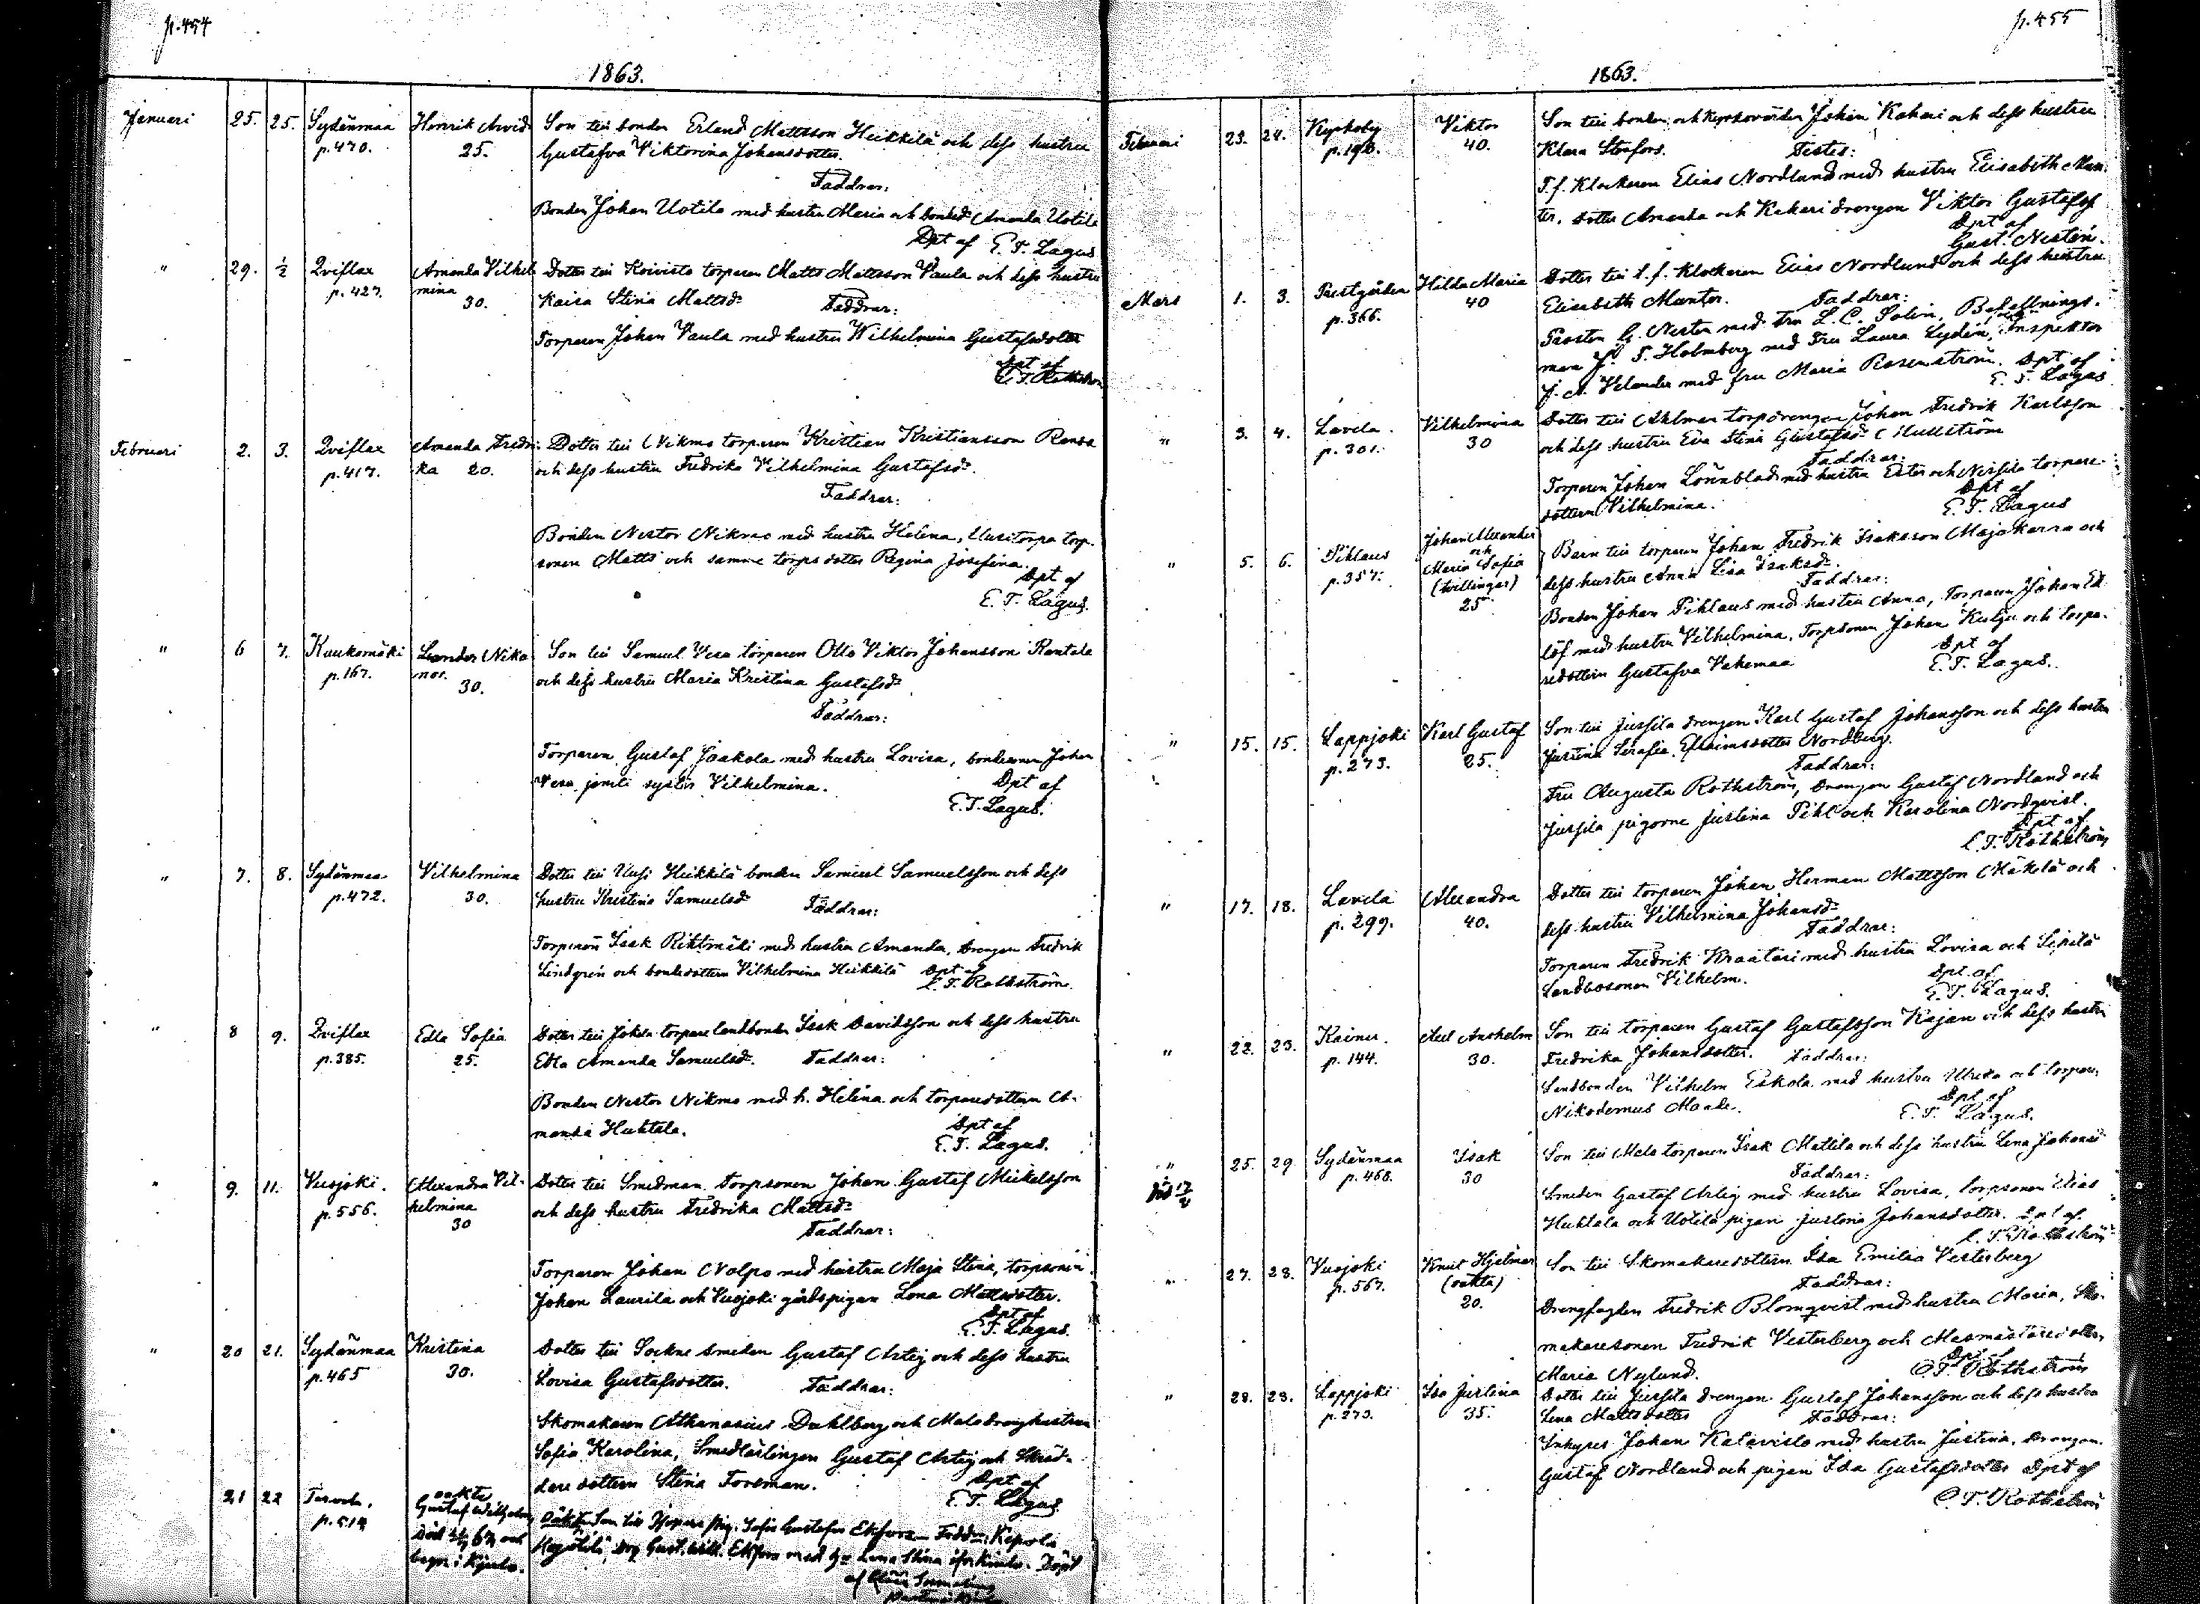 p.454
1863.
Januari 25. 25. Sydänmaa Henrik Arvid Son till bonden Erland Mattsson Heikkilä och dess hustru
p.470. 25. Gustafva Viktorina Johansdotter.
Faddrar:
Bonden Johan Uotila med hustru Maria och bonded. Amanda Uotila
Dpt af E. T. Lagus
" 29. 1/2 Qviflax Amanda Vilhel Dotter till Koivisto torparen Matts Mattsson Vaula och dess hustru
p.427. mina 30. Kaisa Stina Mattsd. Faddrar:
Torparen Johan Vaula med hustru Wilhelmina Gustafsdotter
Dpt af
Februari 2. 3. Qviflax Amanda Fredri- Dotter till Nikmo torparen Kristian Kristiansson Ransa
p.417. ka 20. och dess hustru Fredrika Vilhelmina Gustafsd.
Faddrar:
Bonden Nestor Nikmo med hustru Helena, Uusitorpa torp-
sonen Matts och samma torps dotter Regina Josefina.
Dpt af
E. T. Lagus.
" 6 7. Kaukomäki Leander Nika Son till Samuel Vesa torparen Otto Viktor Johansson Rantala
p.167. nor. 30. och dess hustru Maria Kristina Gustafsd.
Faddrar:
Torparen Gustaf Jaakola med hustru Lovisa, bondesonen Johan
Vesa jemte syster Vilhelmina. Dpt af
E. T. Lagus.
" 7. 8. Sydänmaa Vilhelmina Dotter till Uusi Heikkilä bonden Samuel Samuelsson och dess
p.472. 30. hustru Kristina Samuelsd. Faddrar:
Torparen Isak Rihtmäki med hustru Amanda, drengen Fredrik
Lindgren och bondedottern Vilhelmina Heikkilä Dpt af
C. T. Rothström.
" 8 9. Qviflax Edla Sofia Dotter till Jokela torpare landbonden Isak Davidsson och dess hustru
p.385. 25. Edla Amanda Samuelsd. Faddrar:
Bonden Nestor Nikmo med h. Helena och torparedottern A-
manda Huhtala. Dpt af
E. T. Lagus.
" 9. 11. Vuojoki. Alexandra Vil- Dotter till Smedman torpsonen Johan Gustaf Mickelsson
p.556. helmina och dess hustru Fredrika Mattsd.
30 Faddrar:
Torparen Johan Nolpo med hustru Maja Stina, torpsonen
Johan Laurila och Vuojoki gårdspigan Lena Mattsdotter.
Dpt af
E. T. Lagus.
" 20 21. Sydänmaa Kristina Dotter till Sockne smeden Gustaf Artig och dess hustru
p.465 30. Lovisa Gustafsdotter. Faddrar:
Skomakaren Athanasius Dahlberg och Malo drenghustrun
Sofia Karolina, Smedlärlingen Gustaf Artig och Skräd-
dare dottern Stina Forsman. Dpt af
E. T. Lagus
21 22 oäkta
p.514 Gustaf Wilhelm Oäkta Son till
p.455
1863.
Februari 23. 24. Kyrkoby Viktor Son till bonden och Kyrkovärden Johan Kakari och dess hustru
p.196. 40. Klara Stenfors. Testes:
T.f. Klockaren Elias Nordlund med hustru Elisabeth Mun-
ter, dotter Amanda och Kakari drengen Viktor Gustafss
Dpt af
Gust. Nestén.
Mars 1. 3. Prestgården Hilda Maria Dotter till t.f. Klockaren Elias Nordlund och dess hustru
p.366. 40 Elisabeth Munter. Faddrar:
Prosten G. Nestén med fru L. C. Solin, Befallnings-
man J. F. Holmberg med Fru Laura Lydén, Inspektor
J. A. Velander med fru Maria Rosenström. Dpt af
E. T. Lagus
" 3. 4. Lavila. Vilhelmina Dotter till Ahlman torpdrengen Johan Fredrik Karlsson
p.301. 30 och dess hustru Eva Stina Gustafsd. Hellström
Faddrar:
Torparen Johan Lönnblad med hustru Ester och torpare-
dottern Vilhelmina. Dpt af
E. T. Lagus
" 5. 6. Pihlaus Johan Alexander
p.357. och
Maria Sofia Barn till torparen Johan Fredrik Isaksson Majakarra och
(tvillingar) dess hustru Anna Lisa Isaksd.
25 Faddrar:
Bonden Johan Pihlaus med hustru Anna, Torparen Johan Ek-
löf med hustru Vilhelmina, Torpsonen Johan Kulju och torpa-
redottern Gustafva Vakemaa Dpt af
E. T. Lagus.
" 15. 15. Lappjoki Karl Gustaf Son till Jussila drengen Karl Gustaf Johansson och dess hustru
p.273. 25. Justina Serafia Efraimsdotter Nordberg.
Faddrar:
Fru Augusta Rothström, Drengen Gustaf Nordlund och
Jussila pigorne Justina Pihl och Karolina Nordqvist.
Dpt af
C. T. Rothström
" 17. 18. Lavila Alexandra Dotter till torparen Johan Herman Mattsson Mäkelä och
p. 299. 40. dess hustru Vilhelmina Johansd.
Faddrar:
Torparen Fredrik Kraatari med hustru Lovisa och Sipilä
Landbosonen Vilhelm. Dpt af
E. T. Lagus.
" 22. 23. Kainu. Axel Anshelm Son till torparen Gustaf Gustafsson Kajan och dess hustru
p. 144. 30. Fredrika Johansdotter. Faddrar:
Landbonden Vilhelm Eskola med hustru Ulrika och torparen
Nikodemus Maade. Dpt af
E. T. Lagus.
" 25. 29 Sydänmaa Isak Son till Malo torparen Isak Mattila och dess hustru Lena Johansd
p.468. 30 Faddrar:
Smeden Gustaf Artig med hustru Lovisa, torpsonen Elias
Huhtala och Uotila pigan Justina Johansdotter. Dpt af
C. T. Rothström
" 27. 28. Vuojoki Knut Hjelmar Son till Skomakaredottern Ida Emilia Vesterberg
p.567. (oäkta) Faddrar:
20. Drengfogden Fredrik Blomqvist med hustru Maria, Sko-
makaresonen Fredrik Vesterberg och Masmästaredottern
Maria Nylund. Dpt af
C. T. Rothström
" 28. 28. Lappjoki Ida Justina Dotter till Jussila drengen Gustaf Johansson och dess hustru
p.273. 35. Lena Mattsdotter Faddrar:
Inhyses Johan Kalavisto med hustru Justina, Drengen
Gustaf Nordlund och pigan Ida Gustafsdotter Dpt af
C. T. Rothström